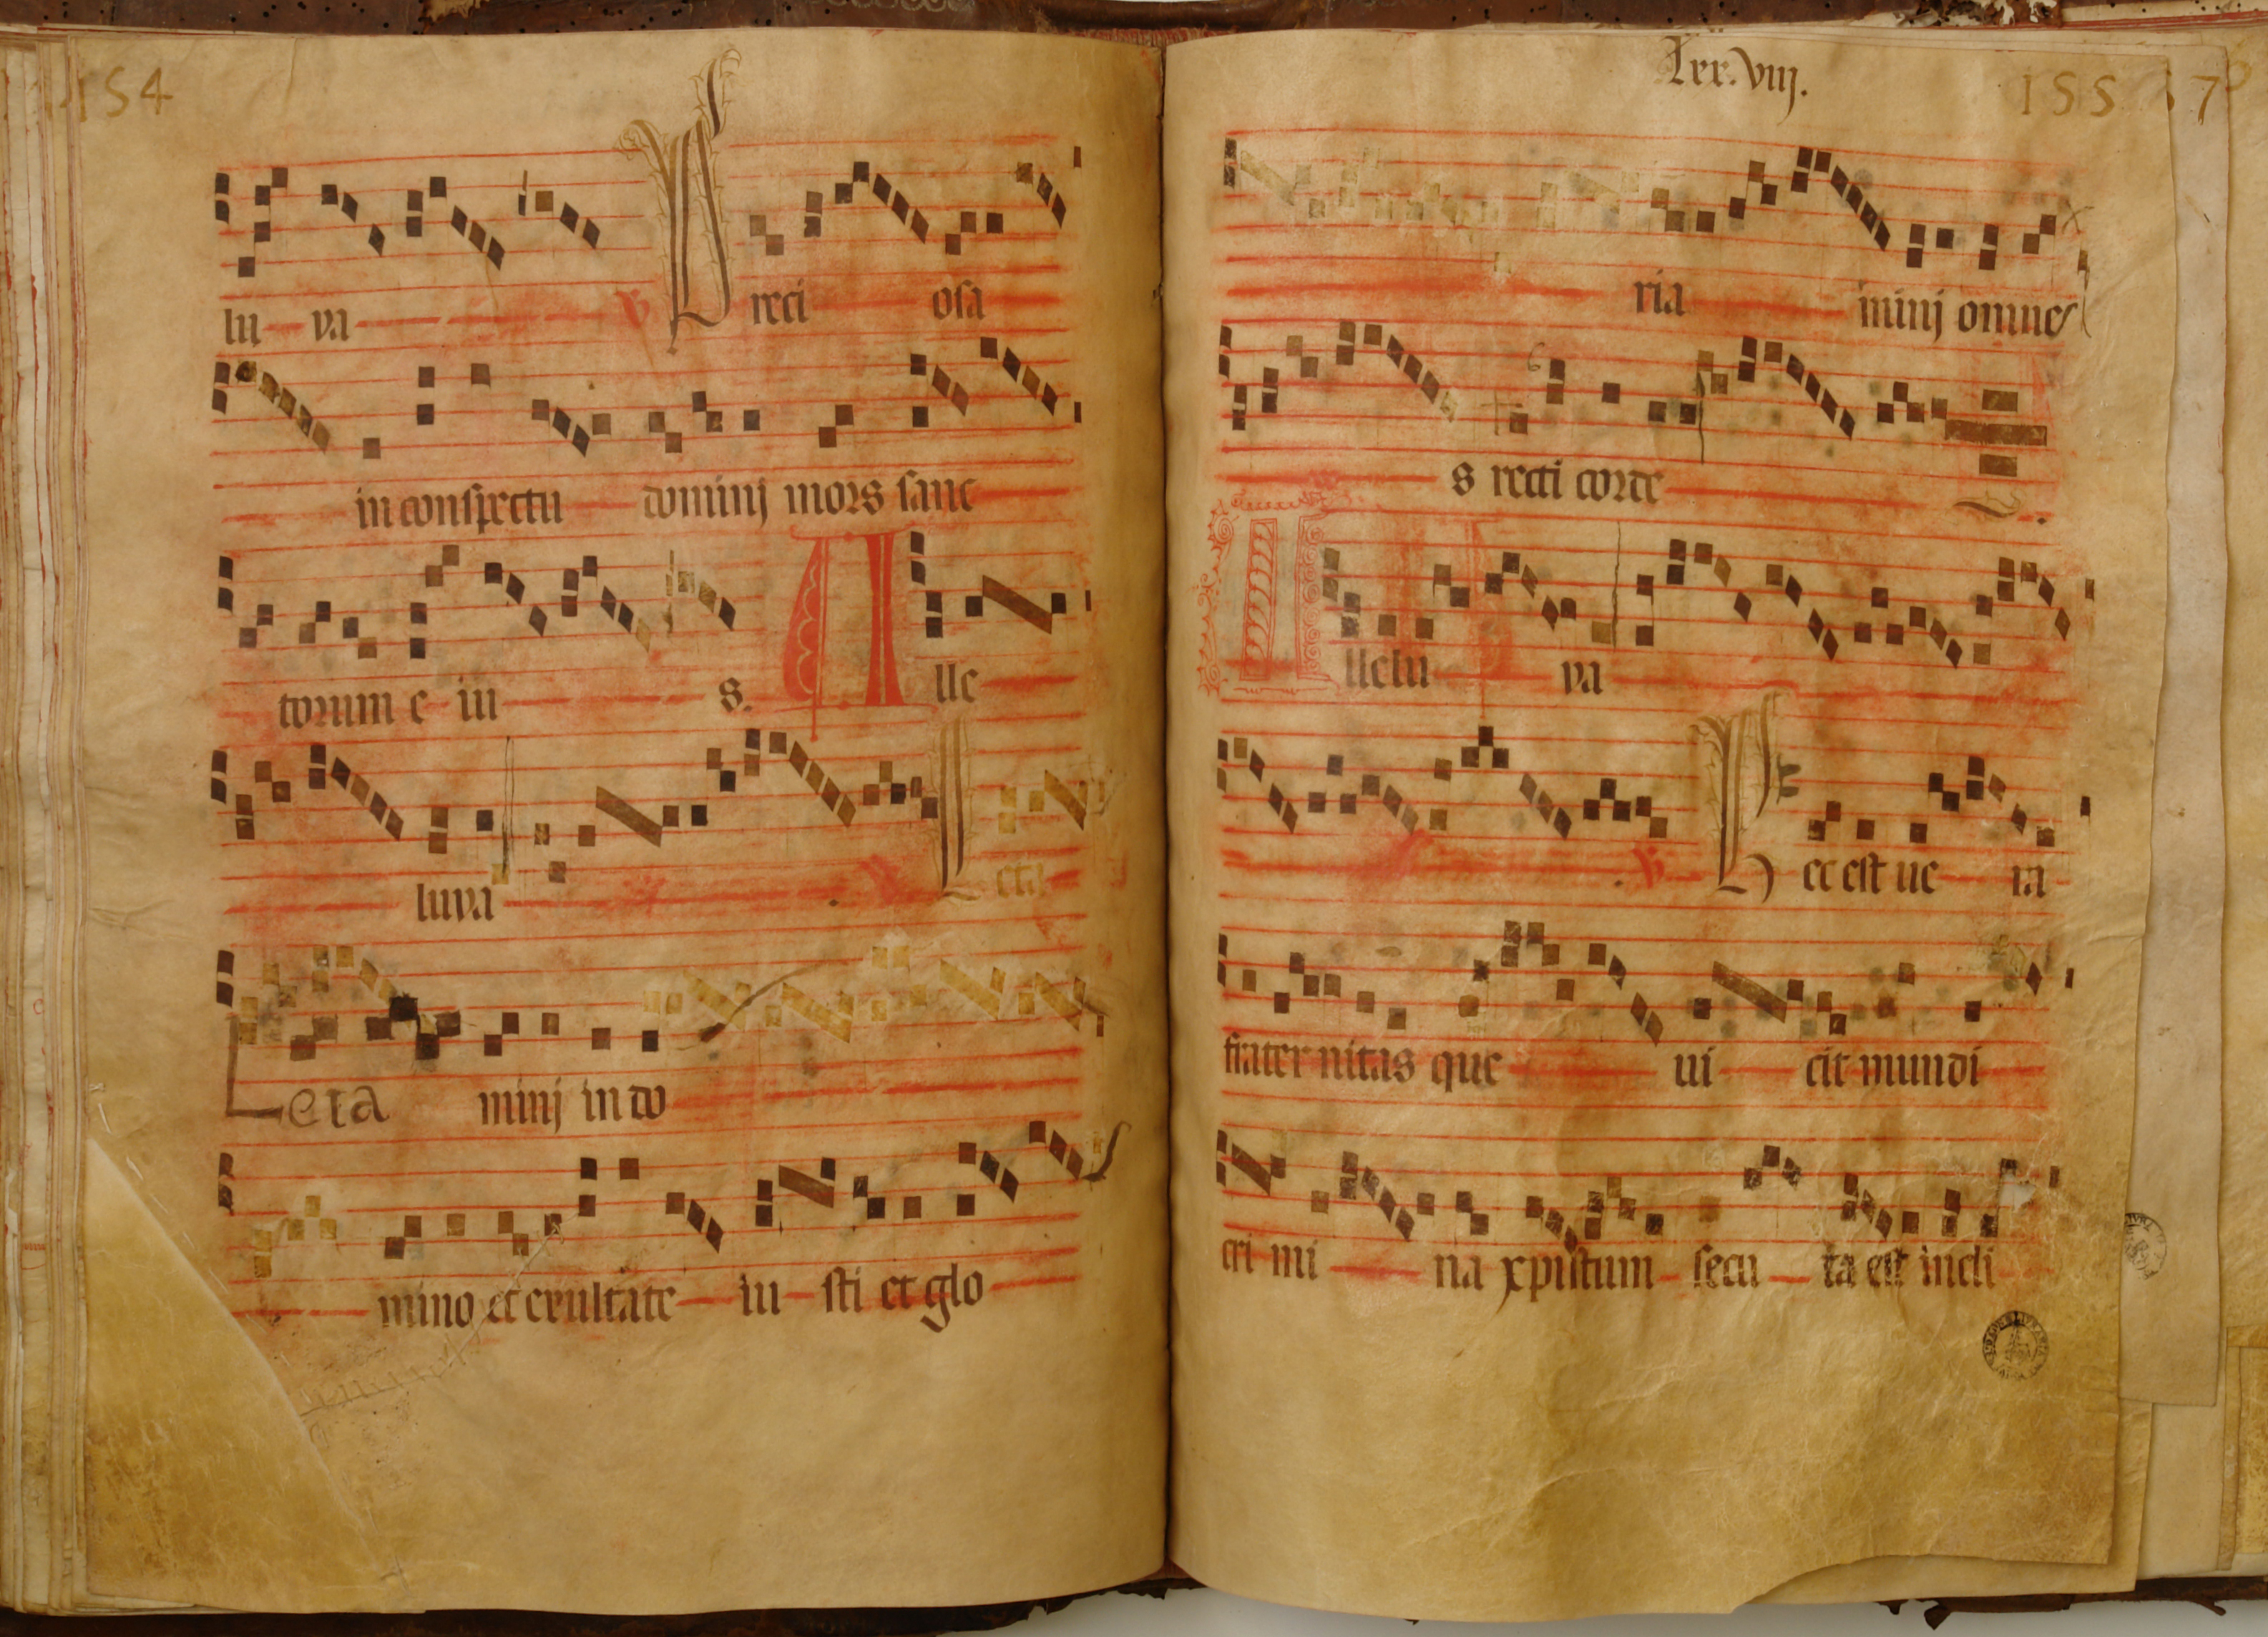 154
lu ya ℣ Preci osa
in conspectu dominj mors sanc
torum e iu s. A lle
luya L eta
Leta minj in do
mino et exultate iu sti et glo
lxx.viij.
155 57
ria minj omnes
s recti corde
A llelu ya
℣ Hec est ue ra
frater nitas que ui cit mundi
cri mi na xpistum secu ta est incli